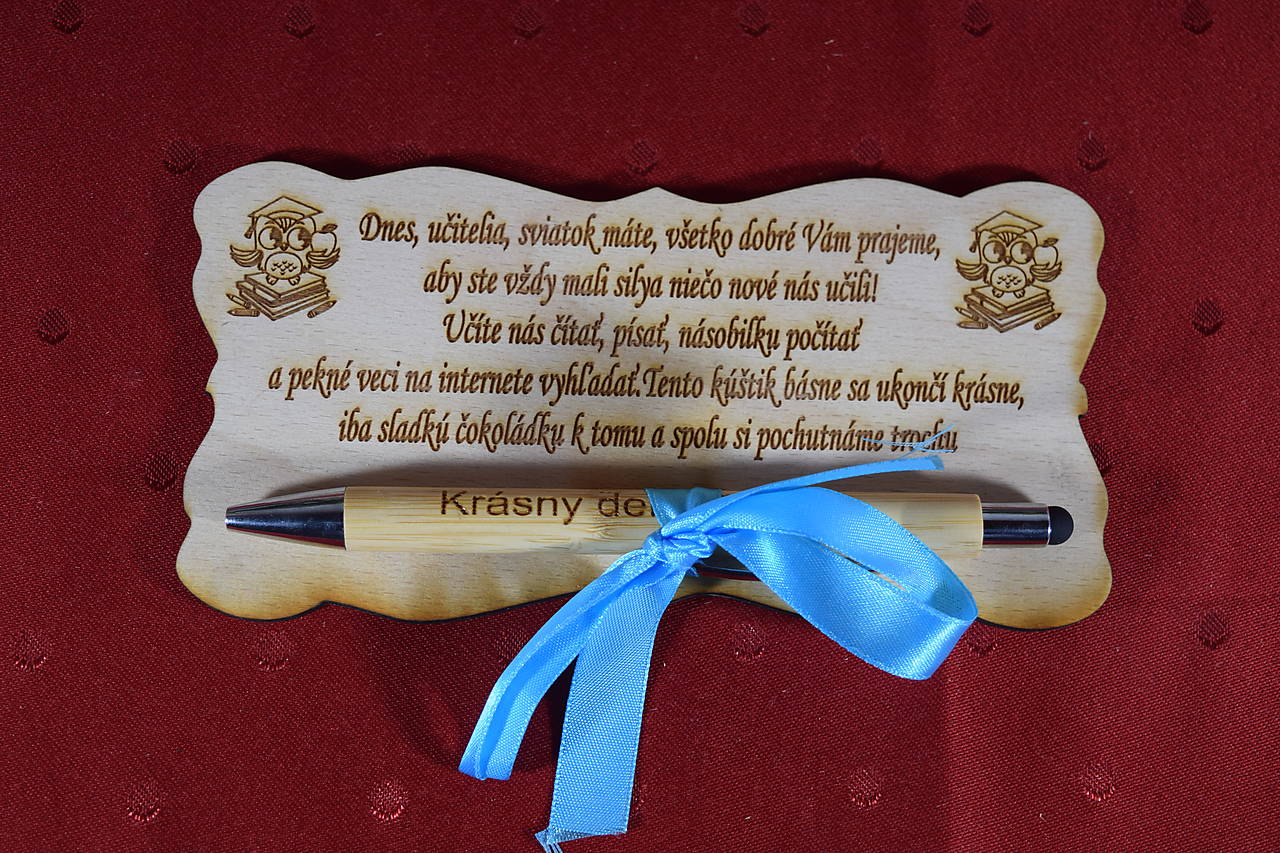 Dnes, učitelia, sviatok máte, všetko dobré Vám prajeme,
aby ste vždy mali silya niečo nové nás učili!
Učíte nás čítať, písať, násobilku počítať
a pekné veci na internete vyhľadať.Tento kúštik básne sa ukončí krásne,
iba sladkú čokoládku k tomu a spolu si pochutnáme trochu
Krásny